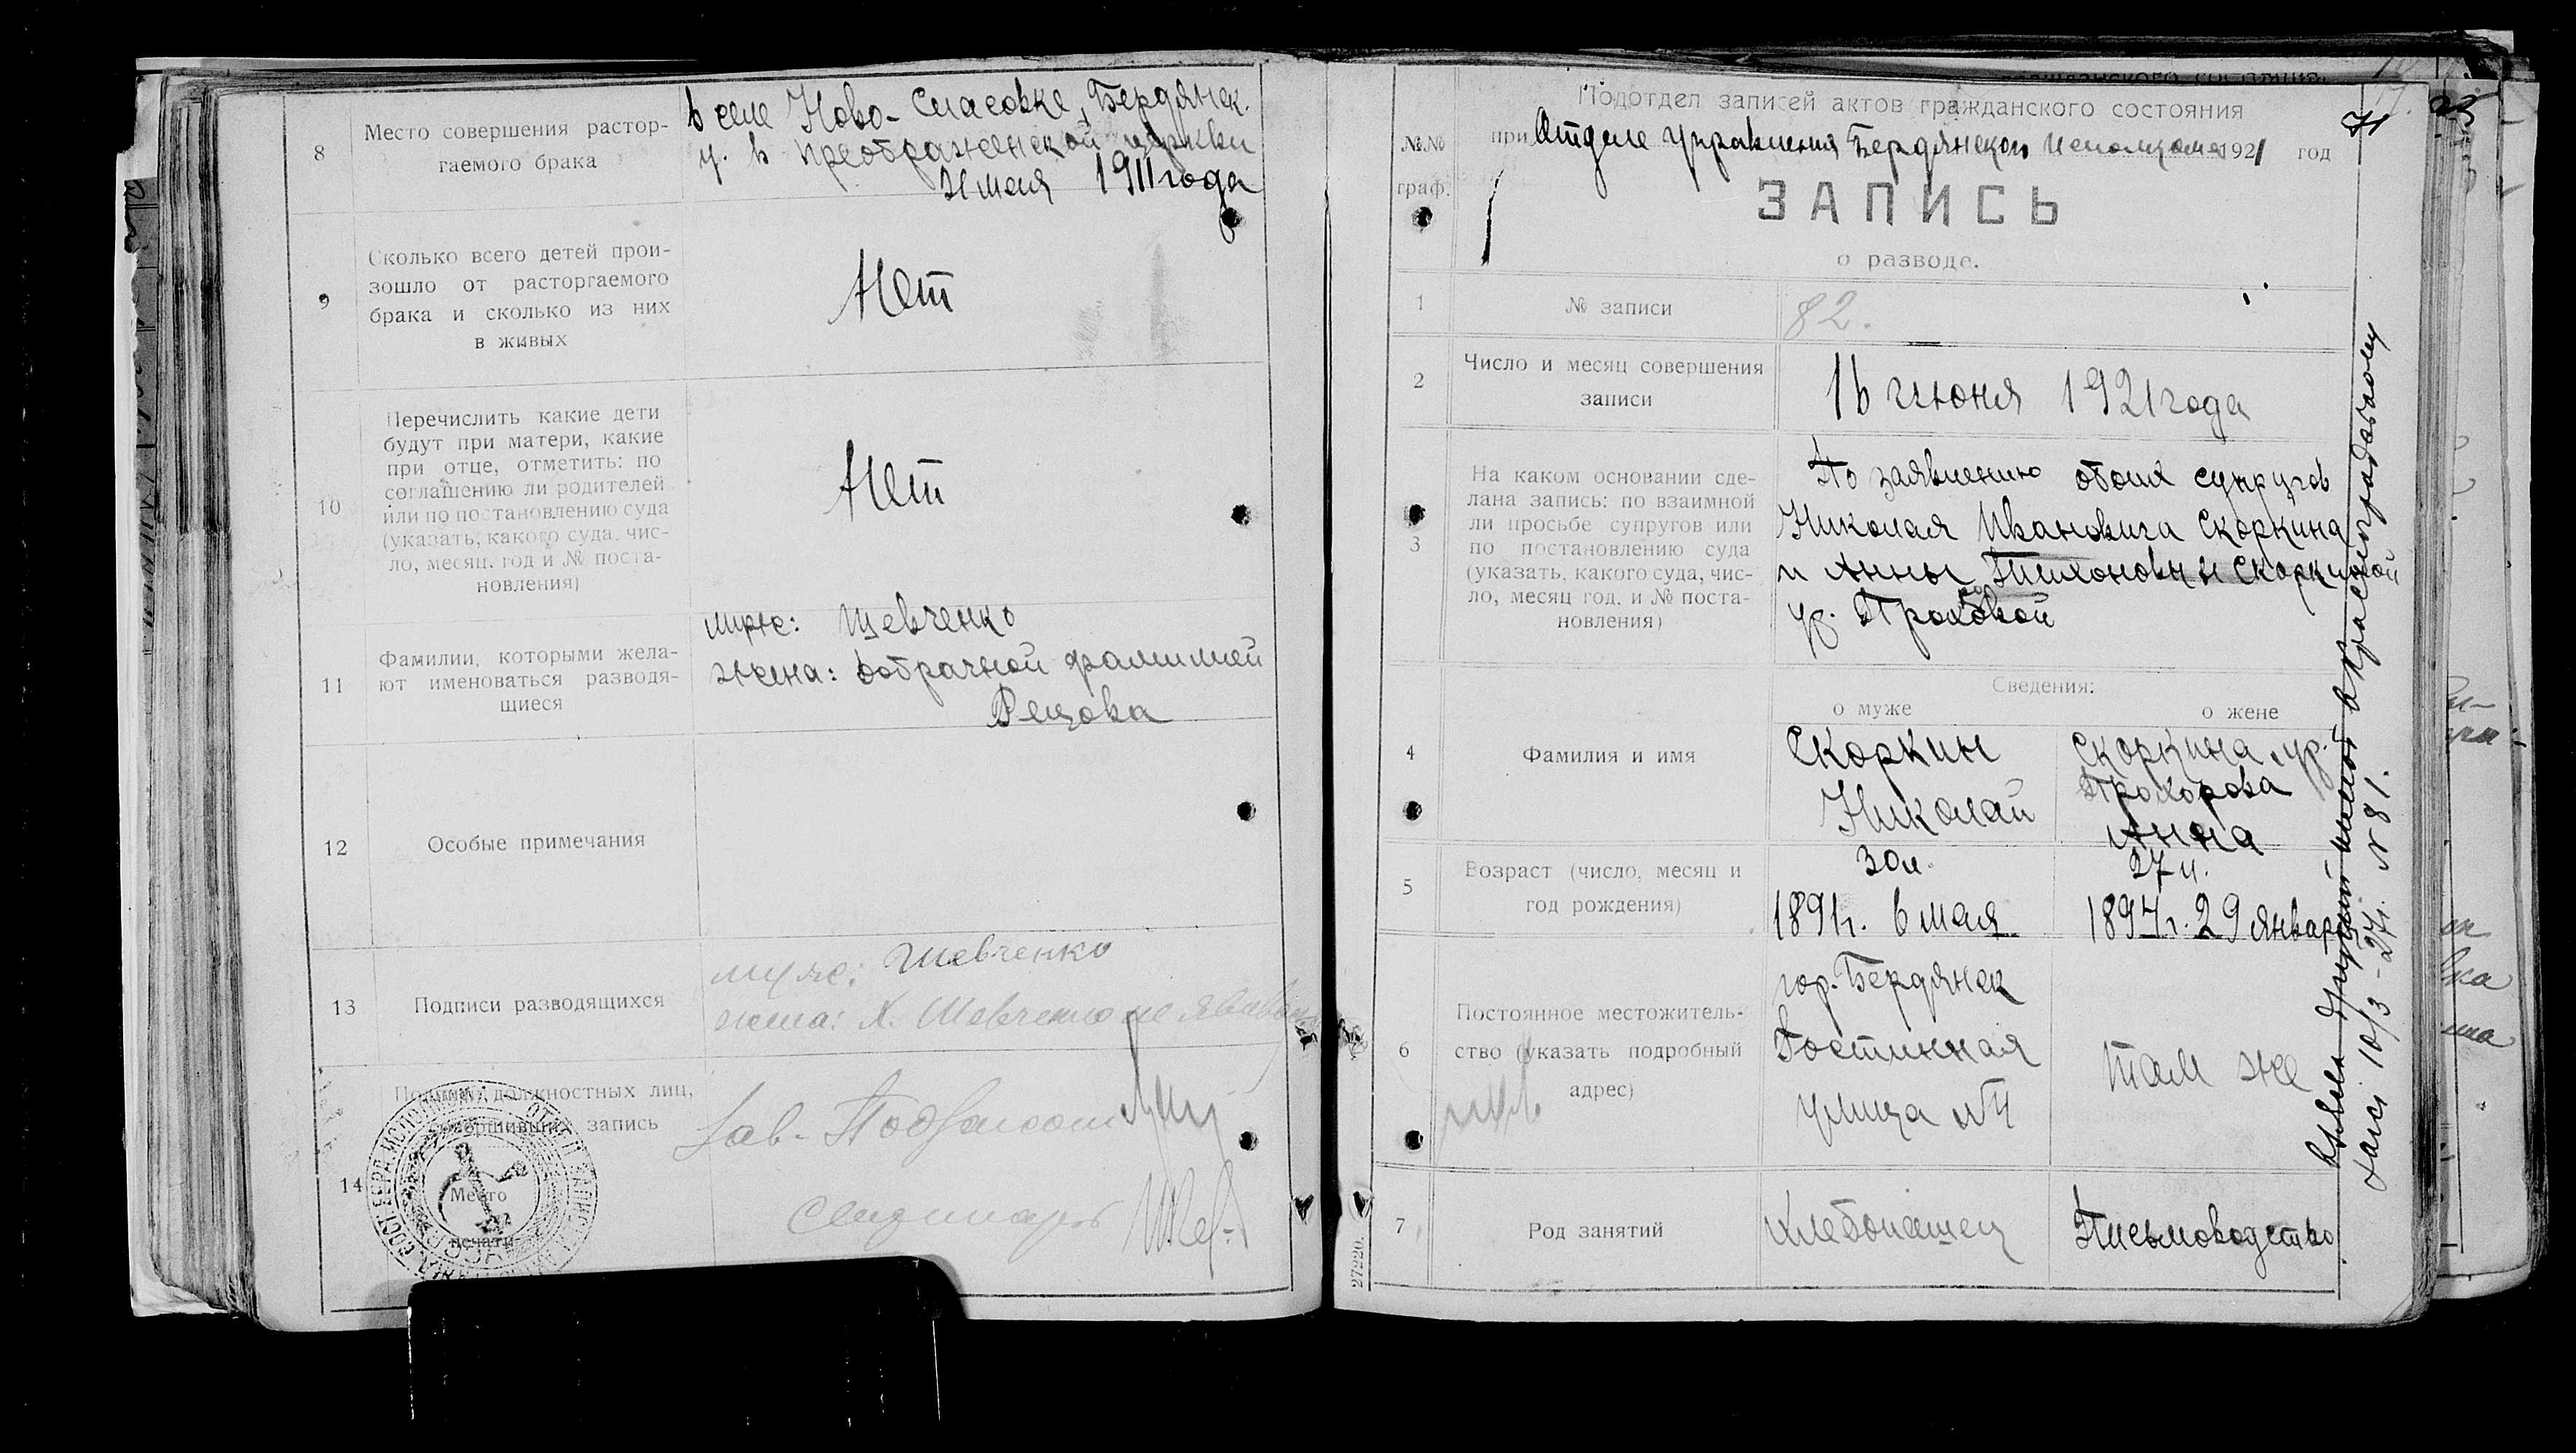 8
Место совершения растор-
гаемого брака
в селе Ново-Спасовке, Бердянск.
у. в Преображенской церкви
мая 1911 года
9
Сколько всего детей прои-
зошло от расторгаемого
брака и сколько из них
в живых
Нет
10
Перечислить какие дети
будут при матери, какие
при отце, отметить: по
соглашению ли родителей
или по постановлению суда
(указать, какого суда, чис-
ло, месяц, год и № поста-
новления)
Нет
11
Фамилии, которыми жела-
ют именоваться разводя-
щиеся
муж: Шевченко
жена: добрачной фамилией
12
Особые примечания
13
Подписи разводящихся
муж: Шевченко
жена: Х. Шевченко не
14
Подписи должностных лиц,
совершивших запись
Место
печати
Зав.
Подотдел записей актов гражданского состояния
при Отделе Управления Бердянского Исполкома 1921 год
№№
граф.
ЗАПИСЬ
о разводе.
1
№ записи
82.
2
Число и месяц совершения
записи
16 июня 1921 года
3
На каком основании сде-
лана запись: по взаимной
ли просьбе супругов или
по постановлению суда
(указать, какого суда, чис-
ло, месяц год, и № поста-
новления)
По заявлению обоих супругов
Николая Ивановича Скоркина
и Анны Тихоновны Скоркиной
ур. Прохоровой
Сведения:
о муже
о жене
4
Фамилия и имя
Скоркин
Николай
Скоркина ур.
Прохорова
Анна
5
Возраст (число, месяц и
год рождения)
30 л.
1891 г. 6 мая
27 л.
1894 г. 29 января
6
Постоянное местожитель-
ство (указать подробный
адрес)
гор. Бердянск
Гостинная
улица №
там же
7
Род занятий
хлебопашец
Письмоводство
27220.
10/3-27 г. № 81.